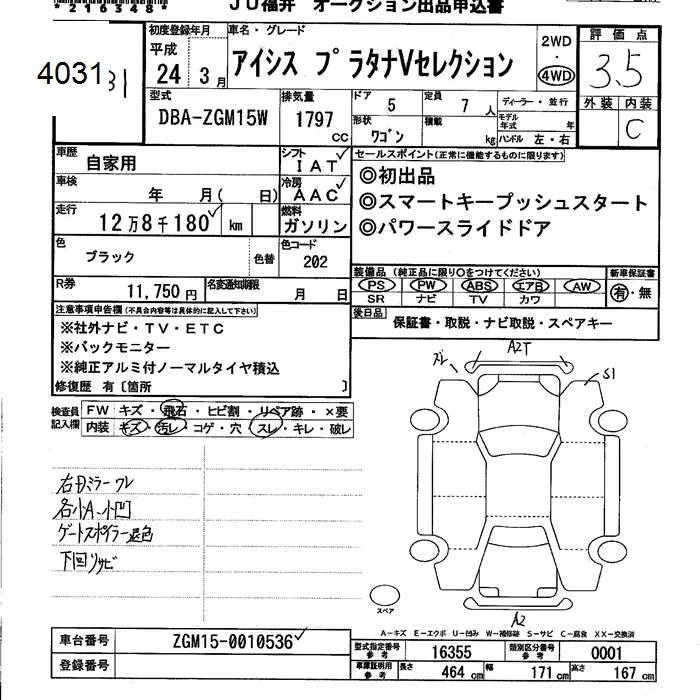 *216348*
JU福井 オークション出品申込書
4031
31
初度登録年月
平成
24年 3月
車名・グレード
アイシス プラタナVセレクション
2WD
・
4WD
評価点
3.5
外装 内装
C
型式
DBA-ZGM15W
排気量
1797
cc
ドア
5
定員
7
人
ディーラー・並行
形状
ワゴン
積載
kg
モデル年式
年
ハンドル 左・右
車歴
自家用
シフト
IAT
セールスポイント(正常に機能するものに限ります)
◎初出品
◎スマートキープッシュスタート
◎パワースライドドア
車検
年 月( 日)
冷房
AAC
走行
12万8千180
km
燃料
ガソリン
色
ブラック
色替
色コード
202
R券
11,750円
名変通知期限
月 日
装備品 (純正品に限り○をつけてください)
PS PW ABS エアB AW
SR ナビ TV カワ
新車保証書
有・無
後日品
保証書・取説・ナビ取説・スペアキー
注意事項申告欄(不具合内容等は具体的に記入して下さい)
※社外ナビ・TV・ETC
※バックモニター
※純正アルミ付ノーマルタイヤ積込
修復歴 有〔箇所 〕
検査員記入欄
FW キズ・飛石・ヒビ割・リペア跡・×要
内装 キズ・汚レ・コゲ・穴・スレ・キレ・破レ
右Dミラーワレ
各小A・小凹
ゲートスポイラー退色
下回リサビ
A2T
ズレ
S1
スペア
A2
A-キズ E-エクボ U-凹み W-補修跡 S-サビ C-腐食 XX-交換済
車台番号
ZGM15-0010536
登録番号
型式指定番号
参考
16355
類別区分番号
参考
0001
車庫証明用
参考
長さ
464 cm
幅
171 cm
高さ
167 cm